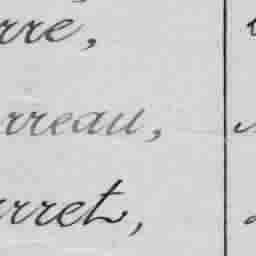 rre,
rreau,
rret,